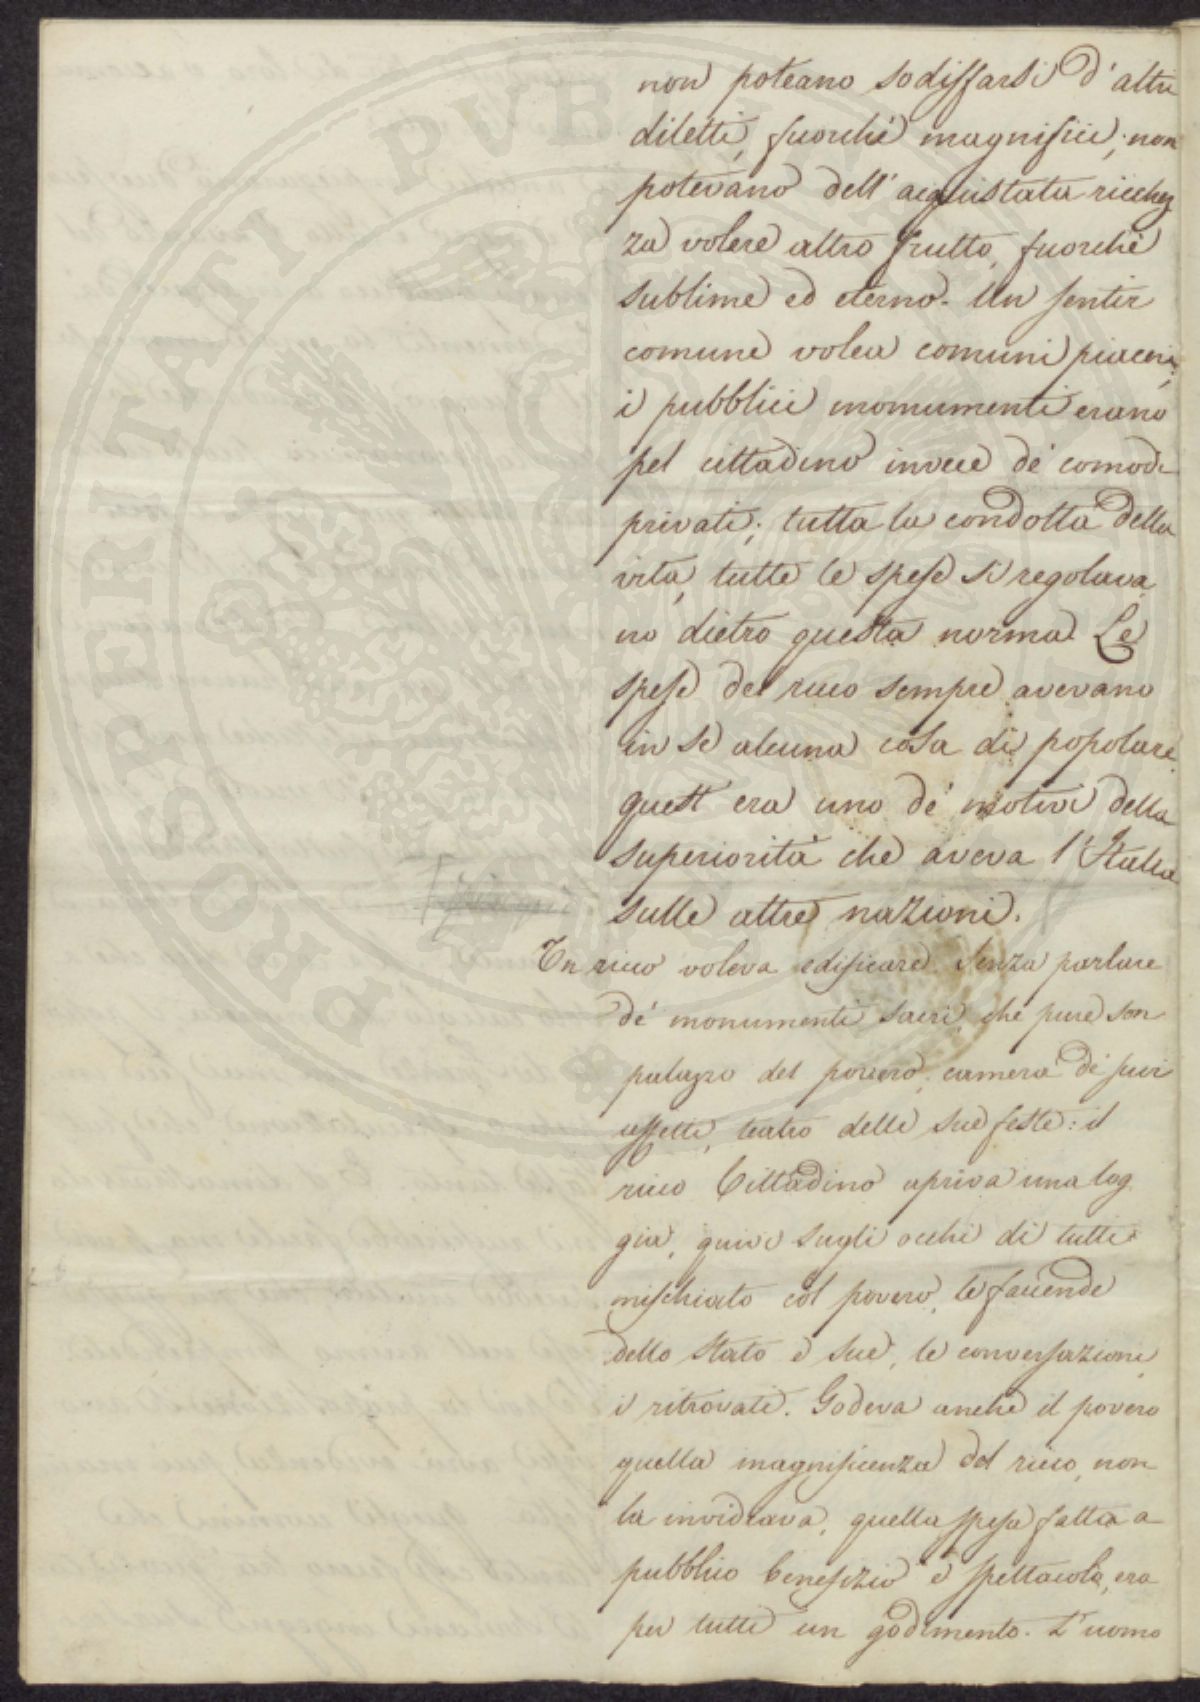 non poteano sodisfarsi d'altri
diletti, fuorché magnifici; non
potevano dell'acquistata ricchez
za volere altro frutto, fuorché
sublime ed eterno. Un sentir
comune volea comuni piaceri;
i pubblici monumenti erano
pel cittadino invece de' comodi
privati; tutta la condotta della
vita, tutte le spese si regolava
no dietro questa norma. Le
spese del ricco sempre avevano
in se alcuna cosa di popolare.
quest era uno de' motivi della
superiorità che aveva l'Italia
sulle altre nazioni.
Un ricco voleva edificare. Senza parlare
de' monumenti sacri, che pure son
palazzo del povero, camera de' suoi
affetti, teatro delle sue feste: il
ricco Cittadino apriva una log
gia, quivi sugli occhi di tutti
mischiato col povero, le faccende
dello Stato e sue, le conversazioni
i ritrovati. Godeva anche il povero
quella magnificenza del ricco, non
la invidiava, quella spesa fatta a
pubblico benefizio e spettacolo, era
per tutti un godimento. L'uomo
PROSPERITATI PVBL